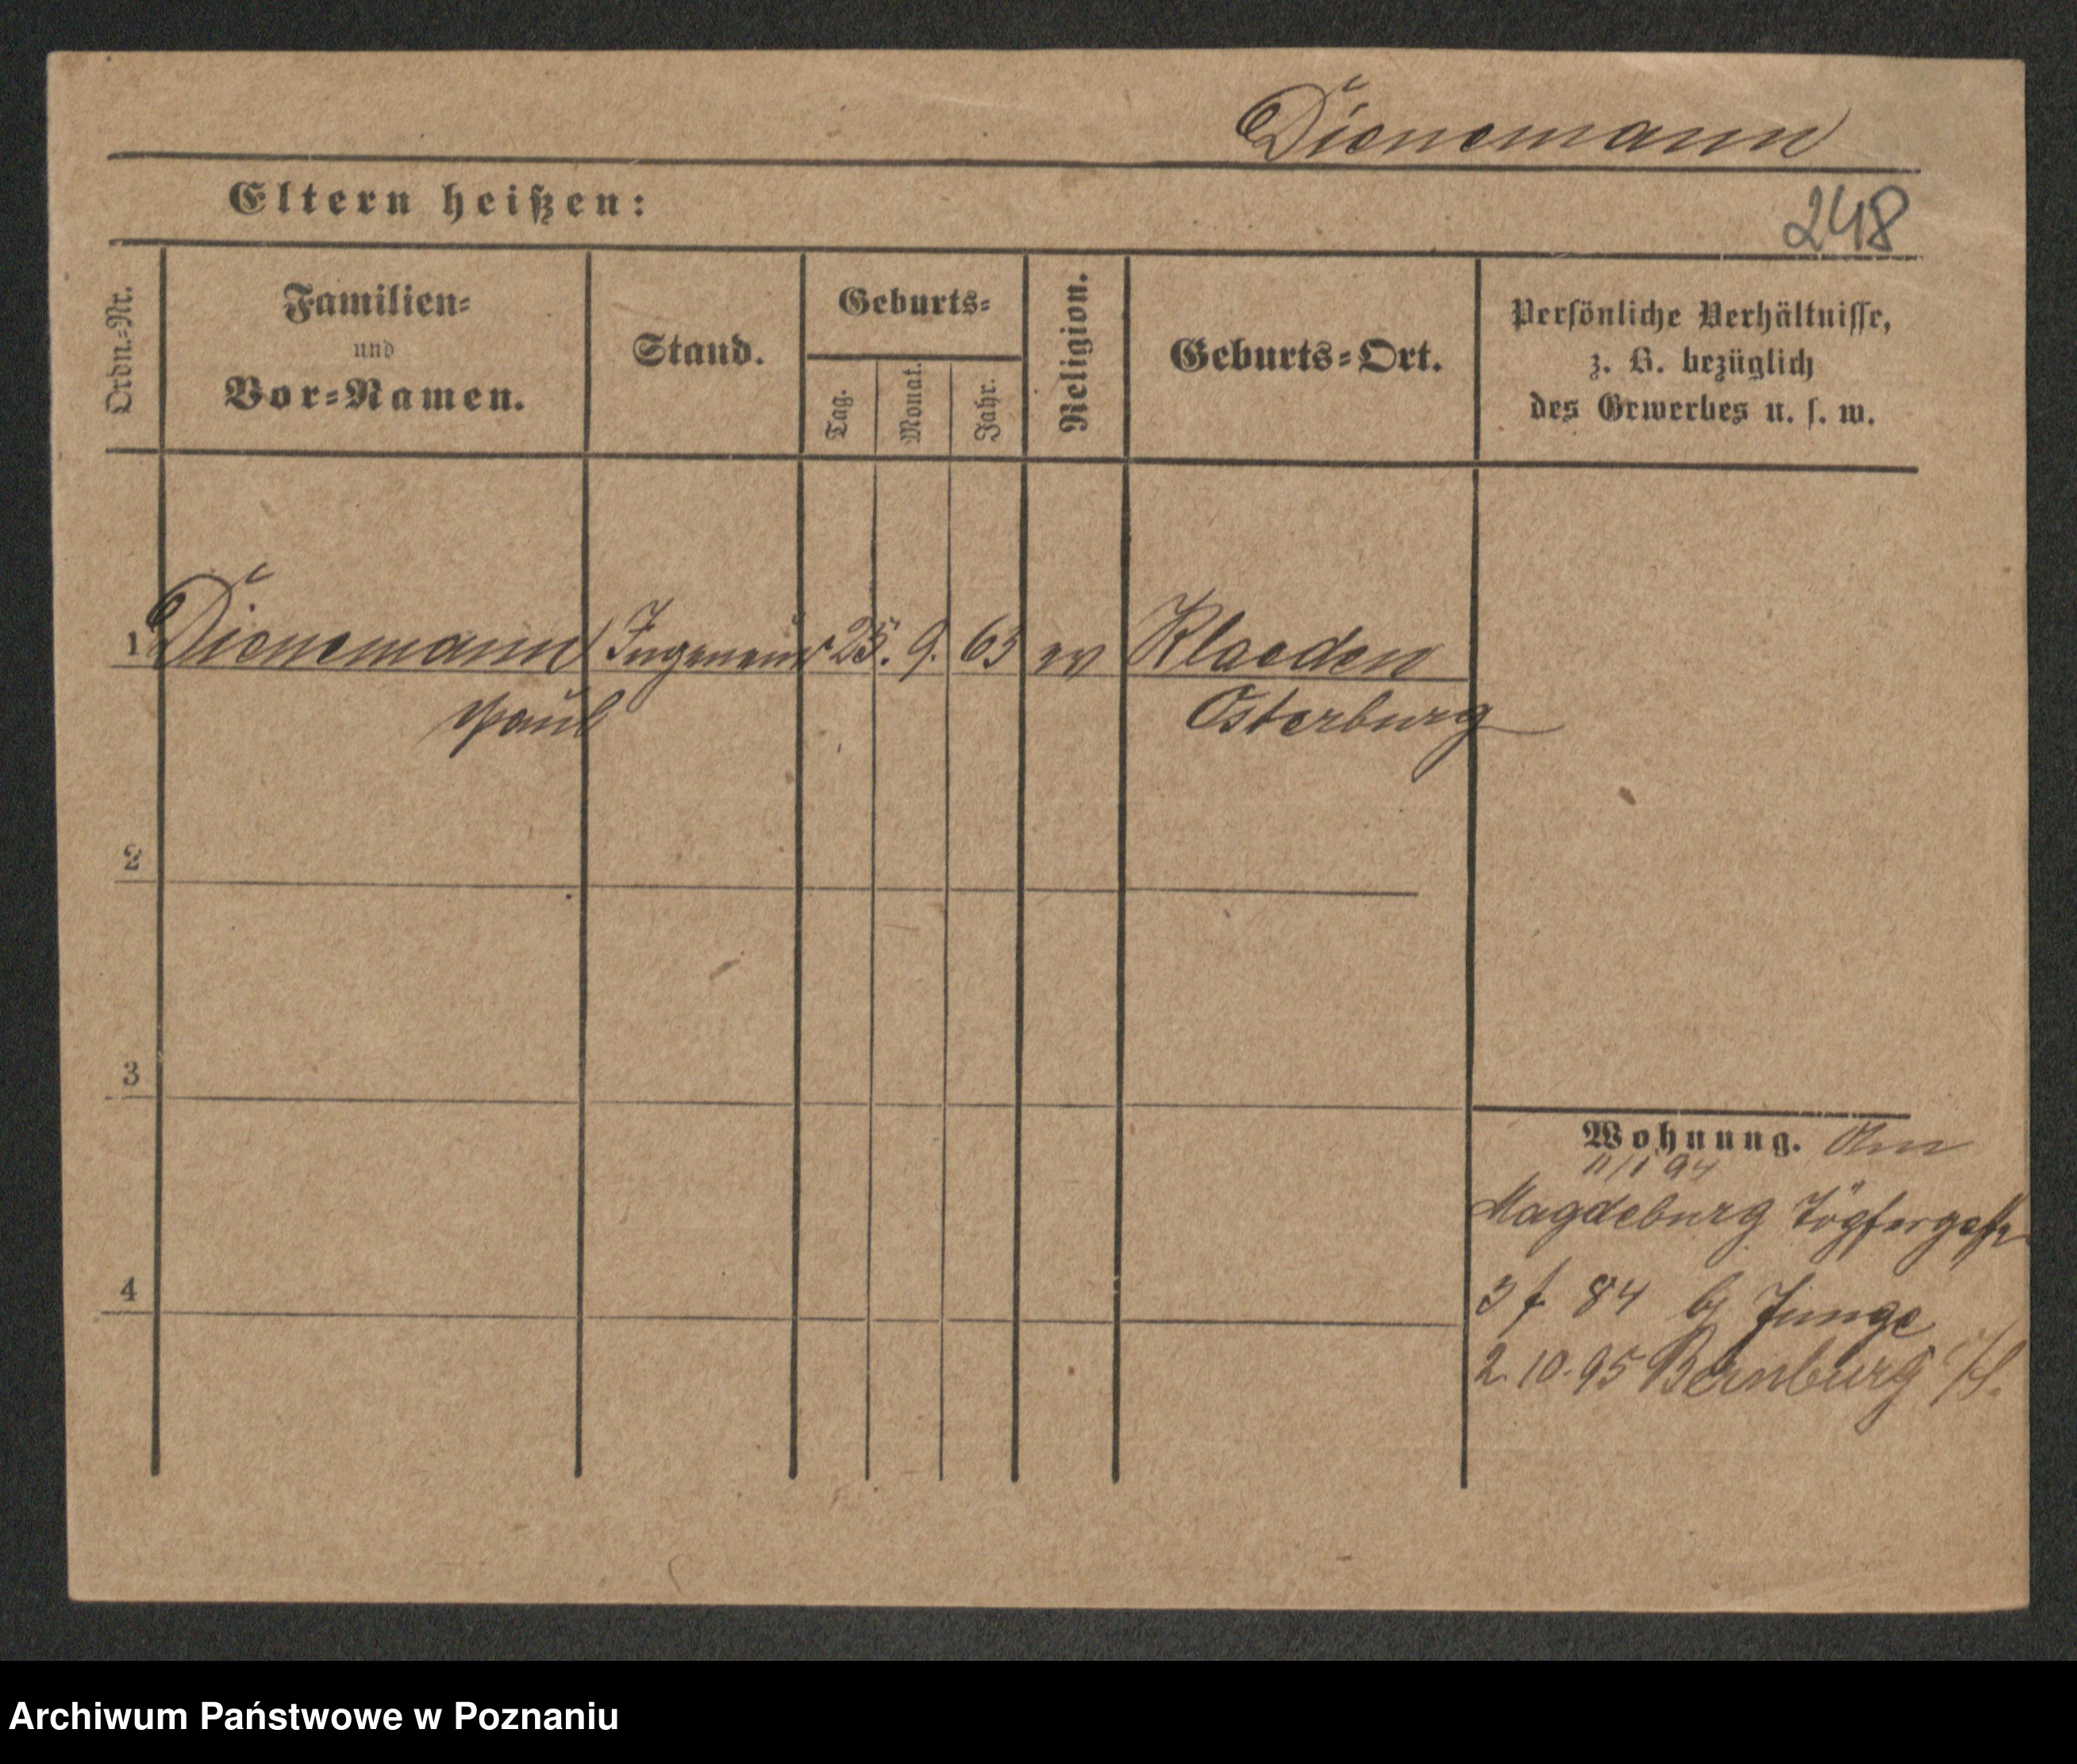 Dienemann
Eltern heißen:
248
Ordn.-Nr.
Familien-
und
Vor-Namen.
Stand.
Geburts-
Tag.
Monat.
Jahr.
Religion.
Geburts-Ort.
Persönliche Verhältnisse,
z. B. bezüglich
des Gewerbes u. s. w.
1 Dienemann Ingenieur 25. 9. 63 ev Klaeden
Paul Osterburg
2
3
4
Wohnung.
11/1 94
Magdeburg
84 Junge
2.10.95 Bernburg /S.
Archiwum Państwowe w Poznaniu